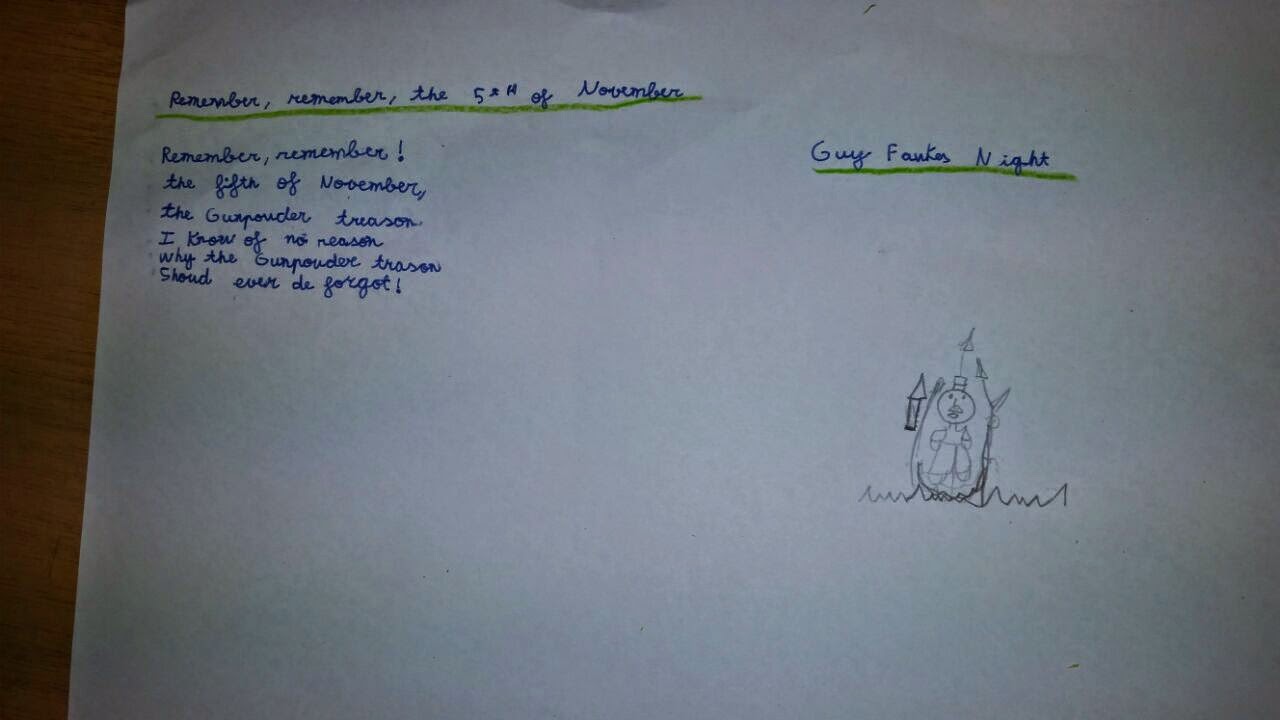 Remember, remember, the 5th of November
Remember, remember!
the fifth of November,
the Gunpouder treason.
I know of no reason
why the Gunpouder trason
Shoud ever de forgot!
Guy Fawkes Night